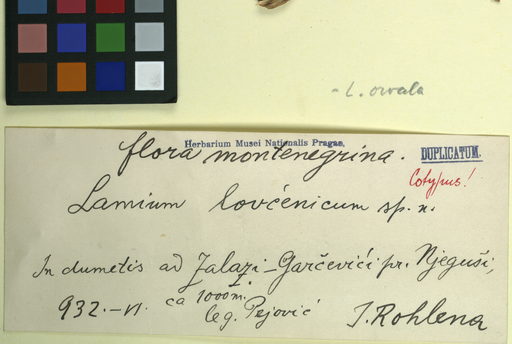 - L. orvala
Herbarium Musei Nationalis Pragae,
flora montenegrina.
DUPLICATUM.
Cotypus!
Lamium lovćenicum sp. n.
In dumetis ad Jalazi - Garčevići pr. Njeguši,
ca 1000 m.
932. - VI.
leg. Pejović
J. Rohlena